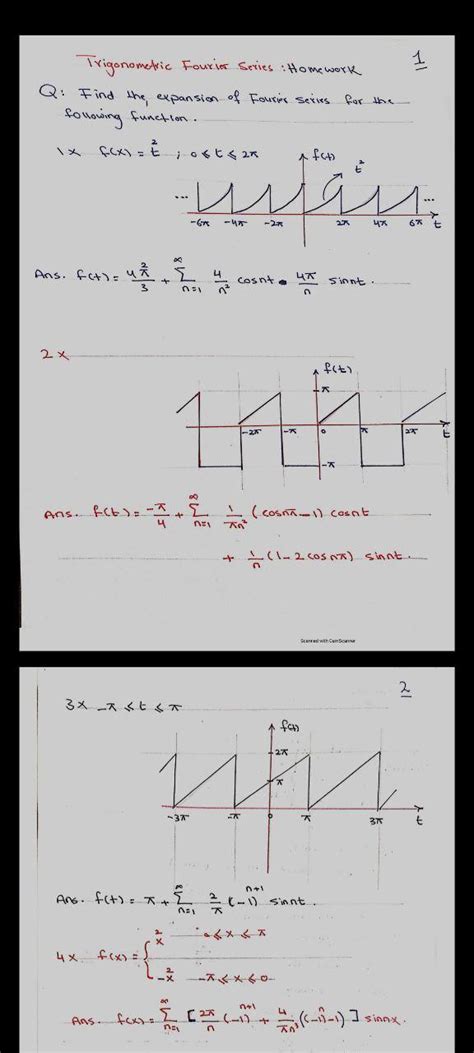 1
Trigonometric Fourier Series : Homework
Q: Find the expansion of Fourier series for the
following function.
1x f(x) = t² ; 0 ≤ t ≤ 2π
f(t)
t²
... ...
-6π -4π -2π 2π 4π 6π t
Ans. f(t) = 4π²/3 + ∞Σn=1 4/n² cosnt - 4π/n sinnt.
2x
f(t)
π
-2π -π 0 π 2π t
-π
Ans. f(t) = -π/4 + ∞Σn=1 1/πn² (cosnπ-1) cosnt
+ 1/n (1-2cosnπ) sinnt.
Scanned with CamScanner
2
3x -π ≤ t ≤ π
f(t)
2π
π
-3π -π 0 π 3π t
Ans. f(t) = π + ∞Σn=1 2/π (-1)ⁿ⁺¹ sinnt.
4x f(x) = { x² 0 ≤ x ≤ π
-x² -π ≤ x ≤ 0
Ans. f(x) = ∞Σn=1 [2π/n (-1)ⁿ⁺¹ + 4/πn³ ((-1)ⁿ-1)] sinnx.